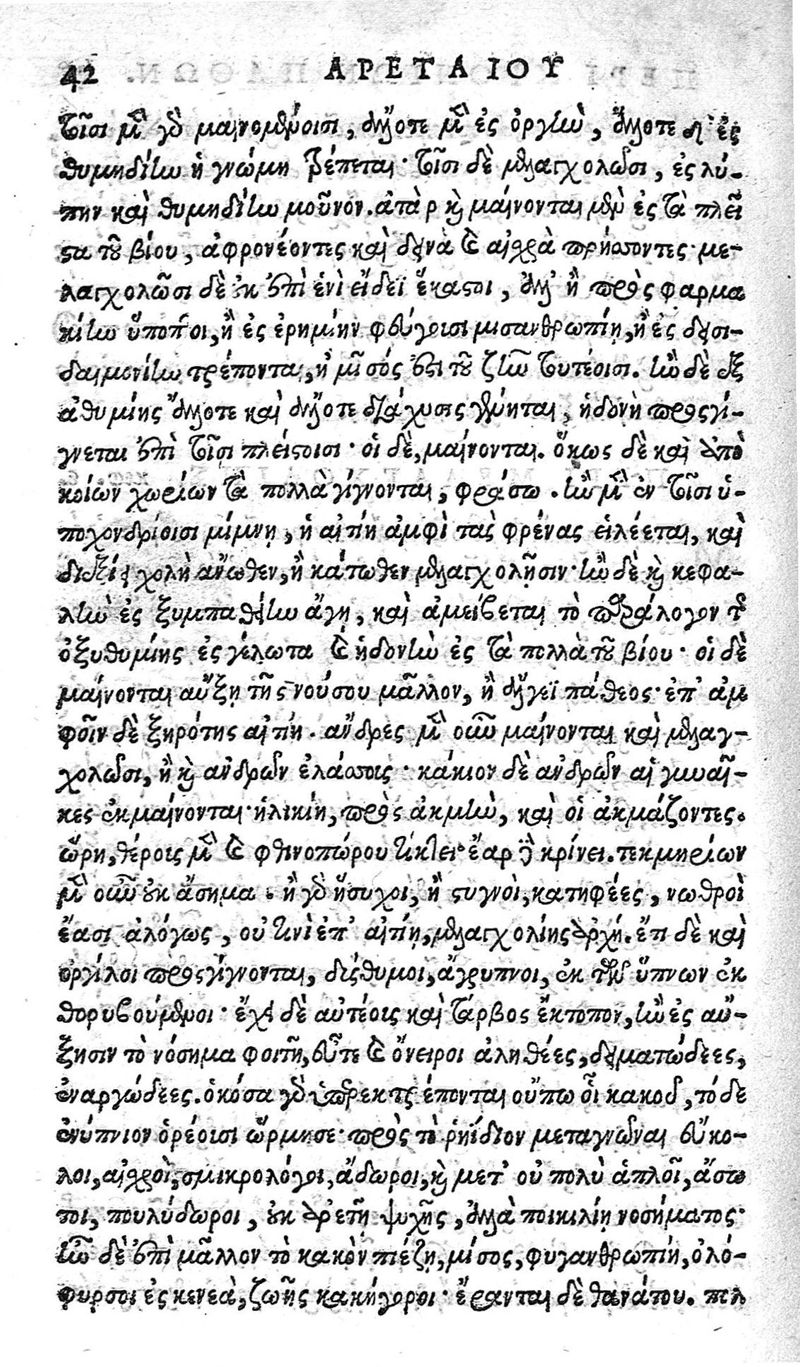 42 ΑΡΕΤΑΙΟΥ
τοῖσι μὲν γὰρ μαινομένοισι, ἄλλοτε μὲν ἐς ὀργὴν, ἄλλοτε δὲ ἐς
θυμηδίην ἡ γνώμη τρέπεται· τοῖσι δὲ μελαγχολῶσι, ἐς λύ-
πην καὶ θυμηδίην μοῦνον. ἀτὰρ καὶ μαίνονται μὲν ἐς τὰ πλεῖ
στα τοῦ βίου, ἀφρονέοντες καὶ δεινὰ καὶ αἰσχρὰ πρήσσοντες· με-
λαγχολῶσι δὲ οὐκ ἐπὶ ἑνὶ εἴδεϊ ἕκαστοι, ἀλλ' ἢ πρὸς φαρμα
κίην ὕποπτοι, ἢ ἐς ἐρημίην φεύγουσι μισανθρωπίῃ, ἢ ἐς δεισι-
δαιμονίην τρέπονται, ἢ μῖσός ἐστι τοῦ ζῆν τουτέοισι. ἢν δὲ ἐξ
ἀθυμίης ἄλλοτε καὶ ἄλλοτε διάχυσις γένηται, ἡδονὴ προσγί-
γνεται ἐπὶ τοῖσι πλείστοισι· οἱ δὲ, μαίνονται. ὅκως δὲ καὶ ἀπὸ
κοίων χωρίων τὰ πολλὰ γίγνονται, φράσω. ἢν μὲν ἐν τοῖσι ὑ-
ποχονδρίοισι μίμνῃ, ἡ αἰτίη ἀμφὶ τὰς φρένας εἱλέεται, καὶ
χολὴ ἄνωθεν, ἢ κάτωθεν μελαγχολῇσιν· ἢν δὲ καὶ κεφα-
λὴν ἐς ξυμπαθείην ἄγῃ, καὶ ἀμείβεται τὸ παράλογον τῆς
ὀξυθυμίης ἐς γέλωτα καὶ ἡδονὴν ἐς τὰ πολλὰ τοῦ βίου· οἱ δὲ
μαίνονται αὔξῃ τῆς νούσου μᾶλλον, ἢ ἀλγεϊ πάθεος· ἐπ' ἀμ
φοῖν δὲ ξηρότης αἰτίη. ἄνδρες μὲν οὖν μαίνονται καὶ μελαγ-
χολῶσι, ἢ καὶ ἀνδρῶν ἐλάσσους· κάκιον δὲ ἀνδρῶν αἱ γυναῖ-
κες ἐκμαίνονται· ἡλικίη, πρὸς ἀκμὴν, καὶ οἱ ἀκμάζοντες.
ὧραι, θέρος μὲν καὶ φθινόπωρον τίκτει· ἔαρ δὲ κρίνει. τεκμηρίων
μὲν οὖν οὐκ ἄσημα. ἢ γὰρ ἥσυχοι, ἢ στυγνοὶ, κατηφέες, νωθροὶ
ἔασι ἀλόγως, οὔ τινι ἐπ' αἰτίῃ, μελαγχολίης ἀρχή. ἔτι δὲ καὶ
ὀργίλοι προσγίγνονται, δύσθυμοι, ἄγρυπνοι, ἐκ τῶν ὕπνων ἐκ
θορυβούμενοι· ἔχει δὲ αὐτέοις καὶ τάρβος ἔκτοπον, ἢν ἐς αὔ-
ξησιν τὸ νόσημα φοιτῇ, εὖτε καὶ ὄνειροι ἀληθέες, δειματώδεες,
ἐναργώδεες. ὁκόσα γὰρ ἕπονται οὔπω κακοῦ, τό δε
ἐνύπνιον ὁρέοισι ὥρμησε· πρὸς τὸ ῥηίδιον μεταγνῶναι εὔκο-
λοι, αἰσχροὶ, σμικρολόγοι, ἄδωροι, καὶ μετ' οὐ πολὺ ἁπλοῖ, ἄσω
τοι, πουλύδωροι, οὐκ ἀρετῇ ψυχῆς, ἀλλὰ ποικιλίῃ νοσήματος·
ἢν δὲ ἐπὶ μᾶλλον τὸ κακὸν πιέζῃ, μῖσος, φυγανθρωπίη, ὀλό-
φυρσοι ἐς κενεὰ, ζωῆς κακήγοροι· ἔρανται δὲ θανάτου. πολ